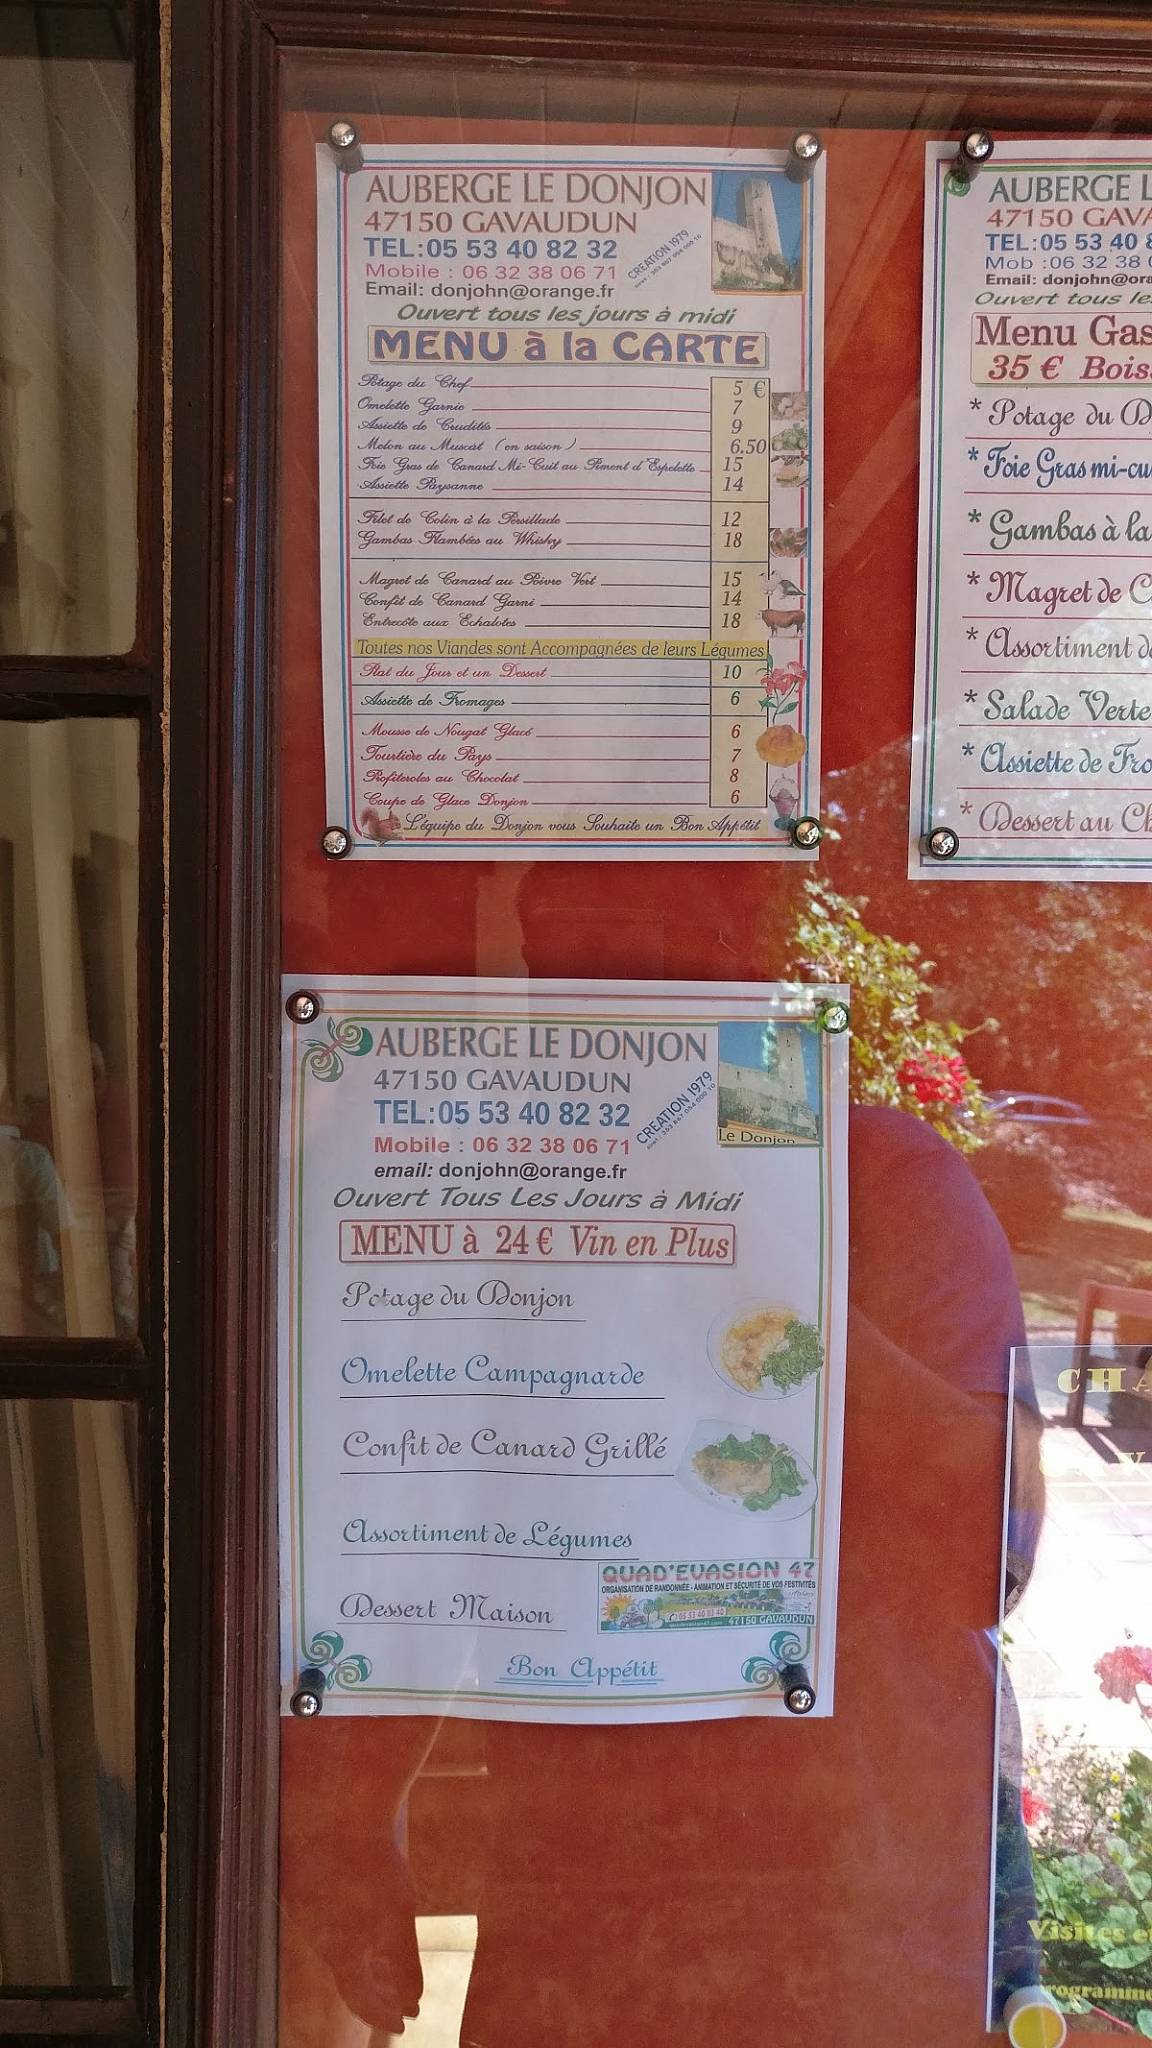 AUBERGE LE DONJON
47150 GAVAUDUN
TEL:05 53 40 82 32
Mobile : 06 32 38 06 71
Email: donjohn@orange.fr
CREATION 1979
Ouvert tous les jours à midi
MENU à la CARTE
Potage du Chef 5 €
Omelette Garnie 7
Assiette de Crudités 9
Melon au Muscat (en saison) 6.50
Foie Gras de Canard Mi-Cuit au Piment d'Espelette 15
Assiette Paysanne 14
Filet de Colin à la Persillade 12
Gambas Flambées au Whisky 18
Magret de Canard au Poivre Vert 15
Confit de Canard Garni 14
Entrecôte aux Echalotes 18
Toutes nos Viandes sont Accompagnées de leurs Légumes
Plat du Jour et un Dessert 10
Assiette de Fromages 6
Mousse de Nougat Glacé 6
Tourtière du Pays 7
Profiteroles au Chocolat 8
Coupe de Glace Donjon 6
L'équipe du Donjon vous Souhaite un Bon Appétit
AUBERGE L
47150 GAVA
TEL:05 53 40 8
Mob :06 32 38 0
Email: donjohn@ora
Ouvert tous les
Menu Gas
35 € Boiss
* Potage du D
* Foie Gras mi-cu
* Gambas à la
* Magret de C
* Assortiment d
* Salade Verte
* Assiette de Fro
* Dessert au Ch
AUBERGE LE DONJON
47150 GAVAUDUN
TEL:05 53 40 82 32
Mobile : 06 32 38 06 71
email: donjohn@orange.fr
CREATION 1979
Le Donjon
Ouvert Tous Les Jours à Midi
MENU à 24 € Vin en Plus
Potage du Donjon
Omelette Campagnarde
Confit de Canard Grillé
Assortiment de Légumes
Dessert Maison
QUAD'EVASION 47
ORGANISATION DE RANDONNÉE - ANIMATION ET SÉCURITÉ DE VOS FESTIVITÉS
05 53 40 83 40
47150 GAVAUDUN
Bon Appétit
CHA
Visites e
rogramme